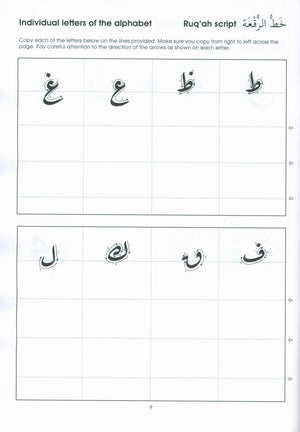 Individual letters of the alphabet Ruq'ah script خَطُّ الرُّقْعَة
Copy each of the letters below on the lines provided. Make sure you copy from right to left across the
page. Pay careful attention to the direction of the arrows as shown on each letter.
ط ظ ع غ
ف ق ك ل
٩